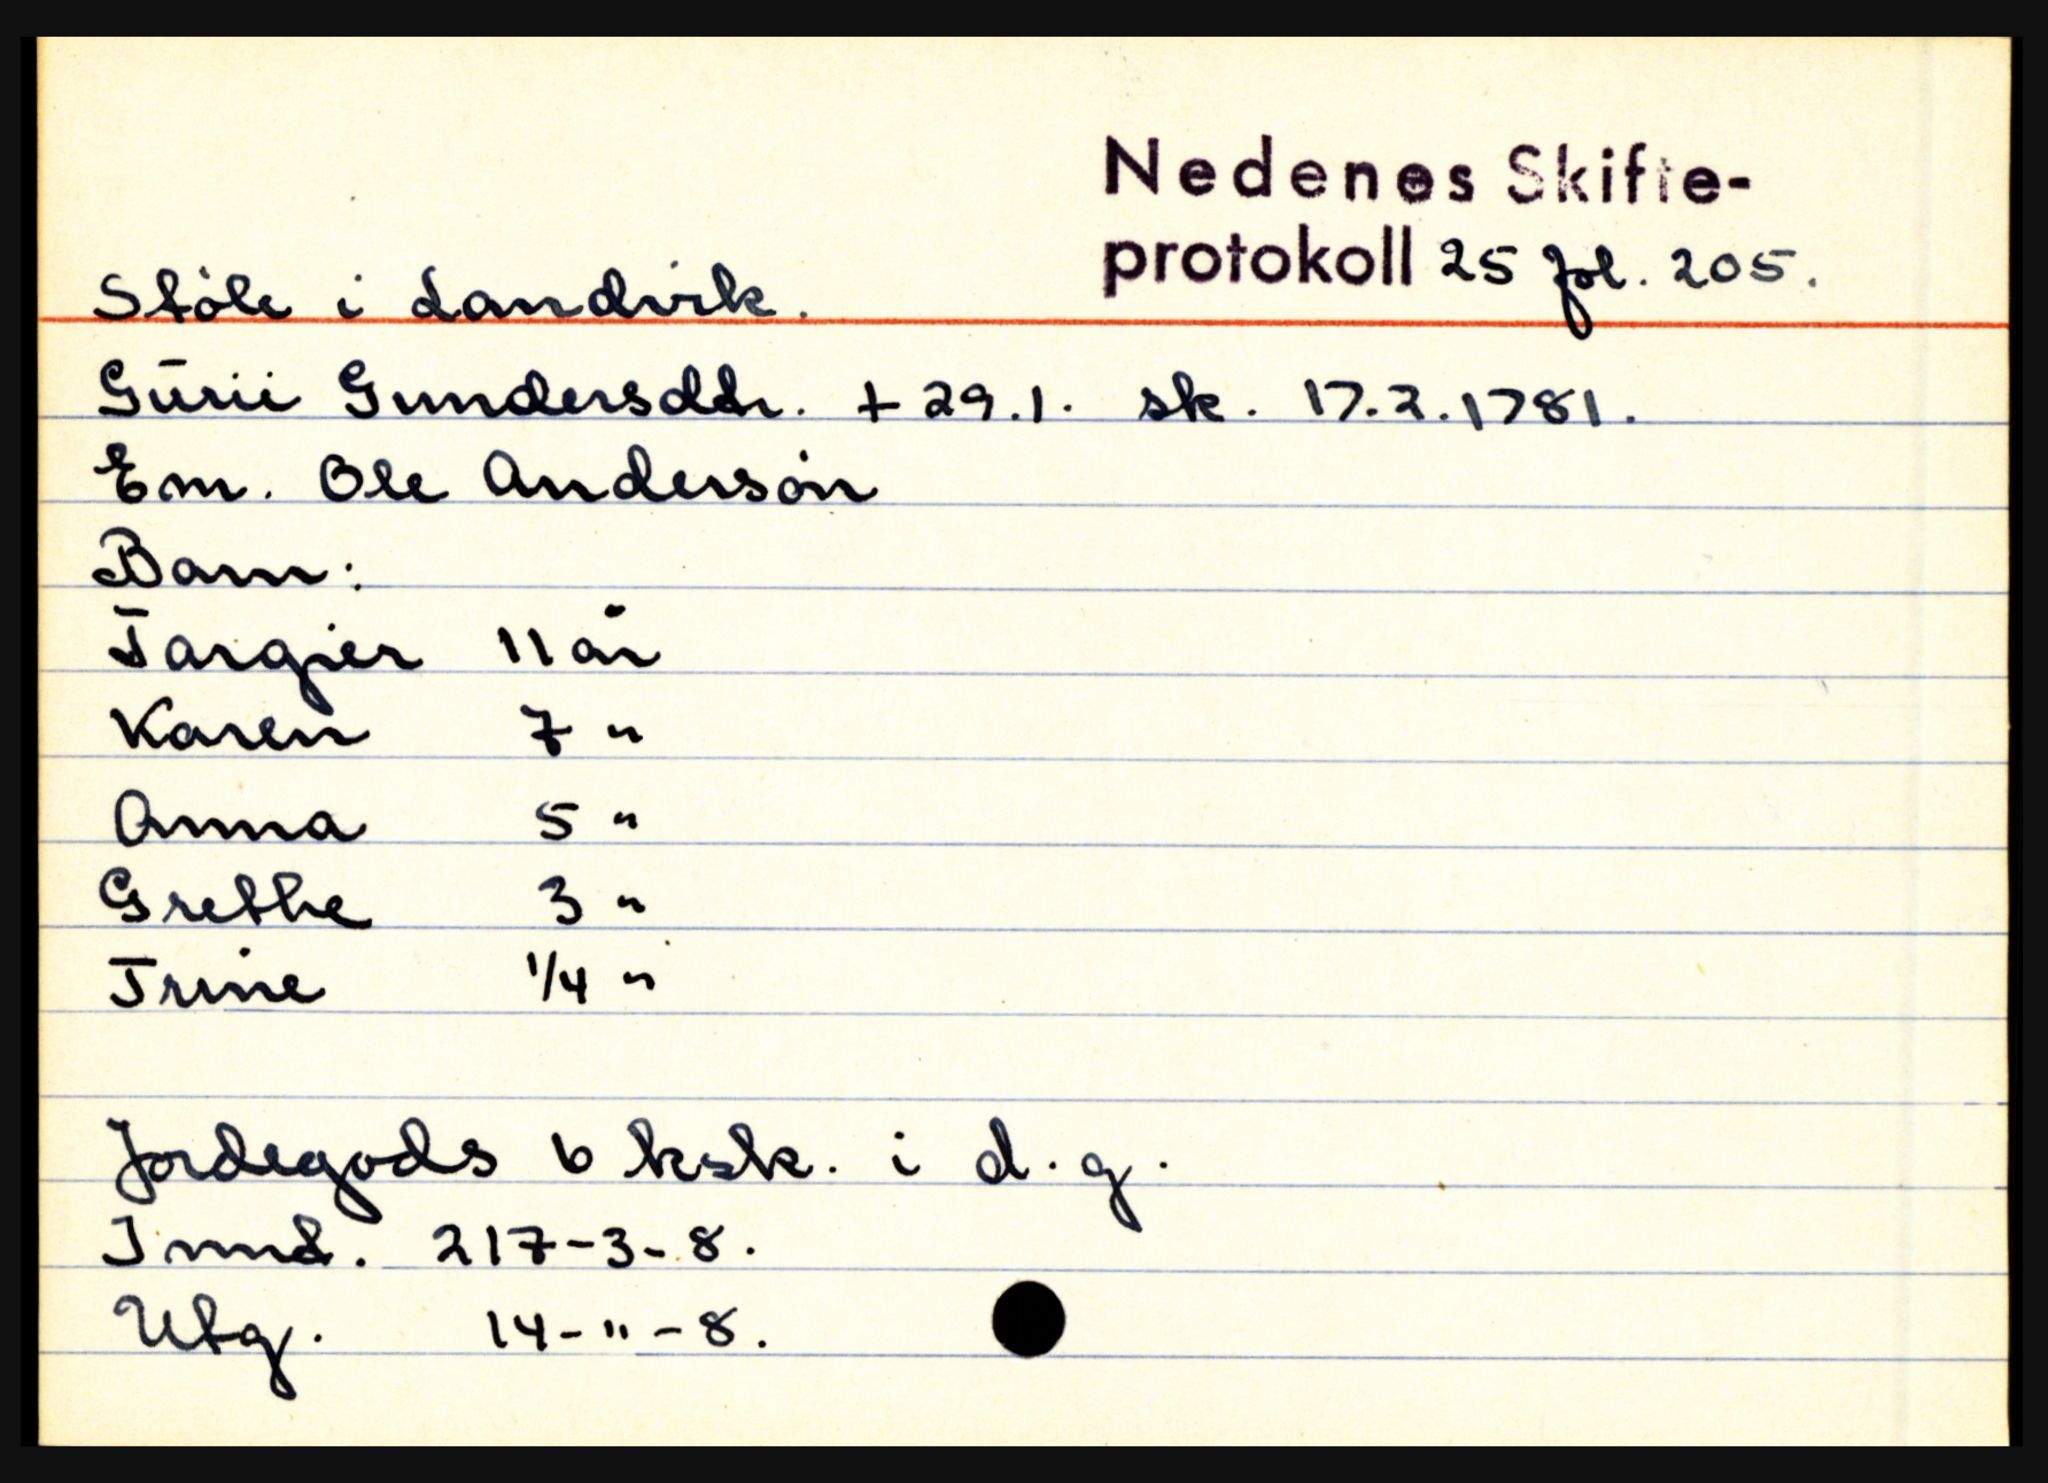 Nedenes Skifte-
protokoll 25 fol. 205.
Støle i Landvik.
Gurii Gundersdtr. + 29.1. sk. 17.2.1781.
Em. Ole Andersøn
Barn:
Targier 11 år
Karen 7 "
Anna 5 "
Grethe 3 "
Trine 1/4 "
Jordegods 6 ksk. i d.g.
Innd. 217-3-8.
Utg. 14-"-8.